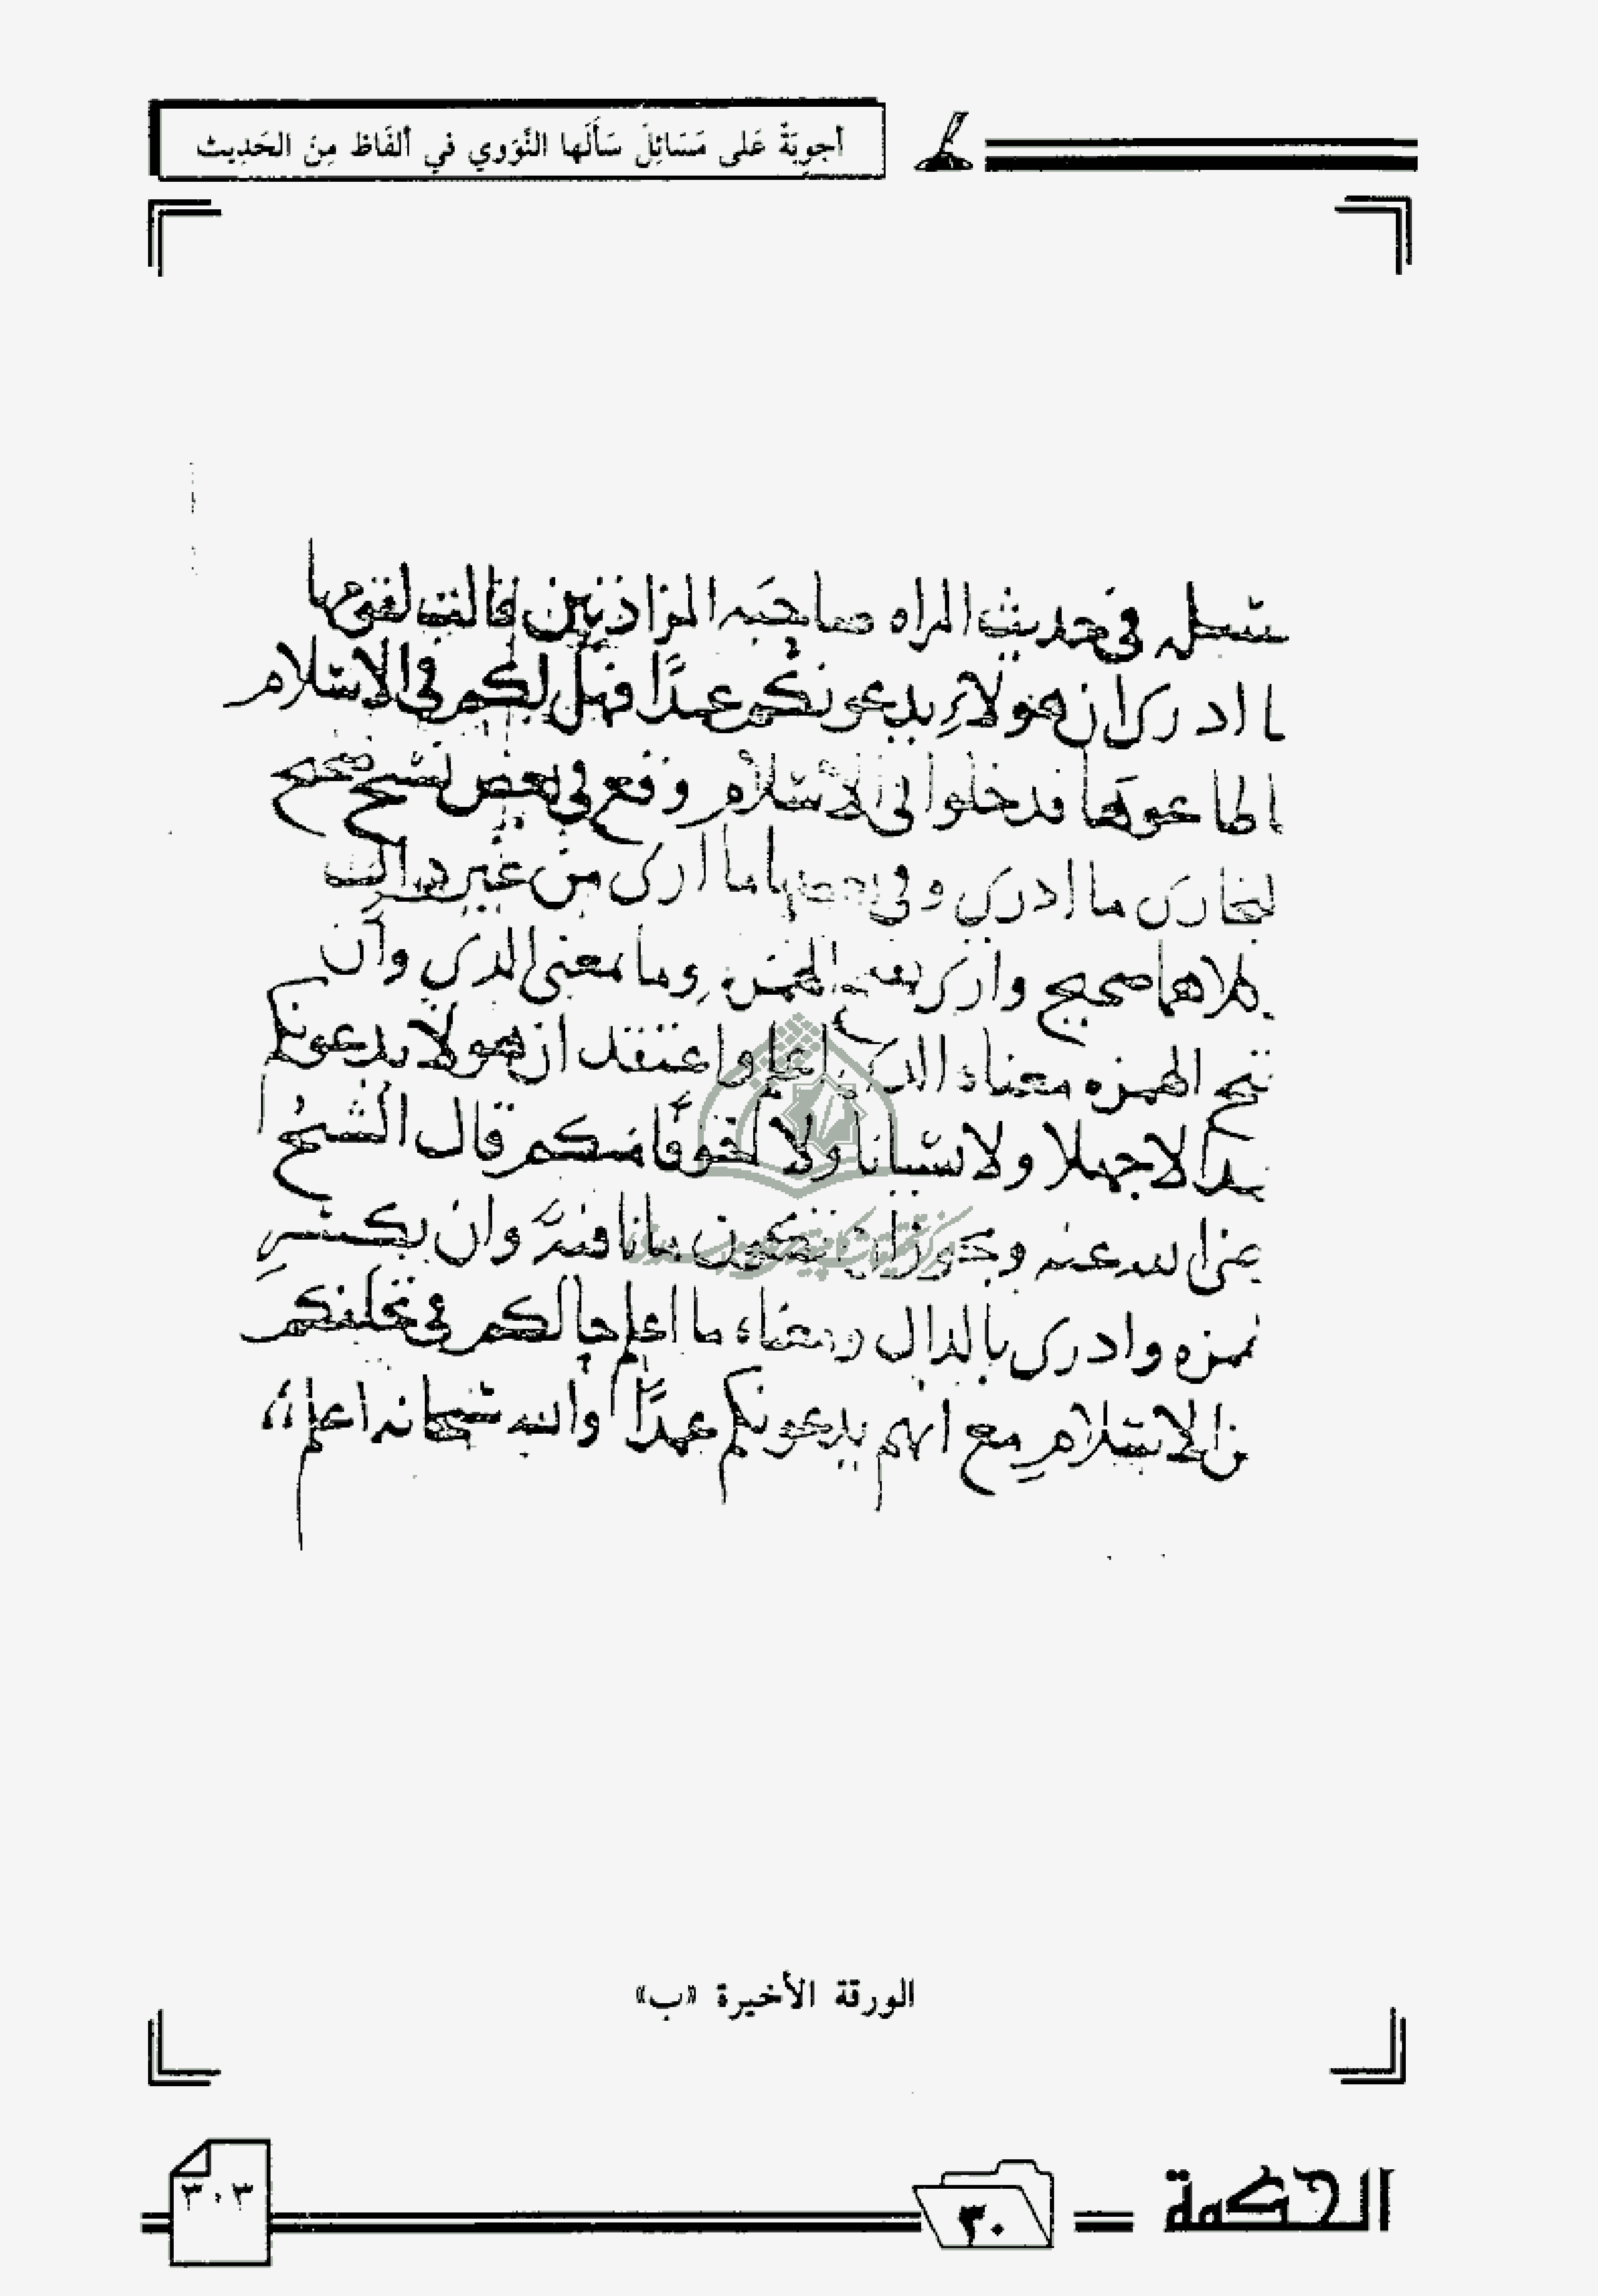 أجوِبَةٌ عَلى مَسَائِلَ سَأَلَها النَّوَوي في ألفَاظ مِنَ الحَدِيث
في حديث المراه صاحبه المزادتين فقالت لقومها
ما ادرى ان هولاءِ يدعونكم عمدًا فهل لكم في الاسلام
اطاعوها فدخلوا في الاسلام وقع في بعض نسخ صحيح
لبخارى ما ادري وفي بعضها ما أرى من غير دال
كلاهما صحيح وارى بفتح الهمزه وما بمعنى الذي وأن
بفتح الهمزه معناه الذي اعلم واعتقد ان هولا يدعونكم
عمدا لا جهلا ولا نسيانا ولا خوفًا منكم قال الشيخ
رضى الله عنه ويجوز ان تكون ما نافيةً وان بكسر
همزه وادرى بالدال ومعناه ما اعلم حالكم في تخلفكم
عن الاسلام مع انهم يدعونكم عمدًا والله سبحانه اعلم
الورقة الأخيرة «ب»
الحكمة
٣٠
٣٠٣